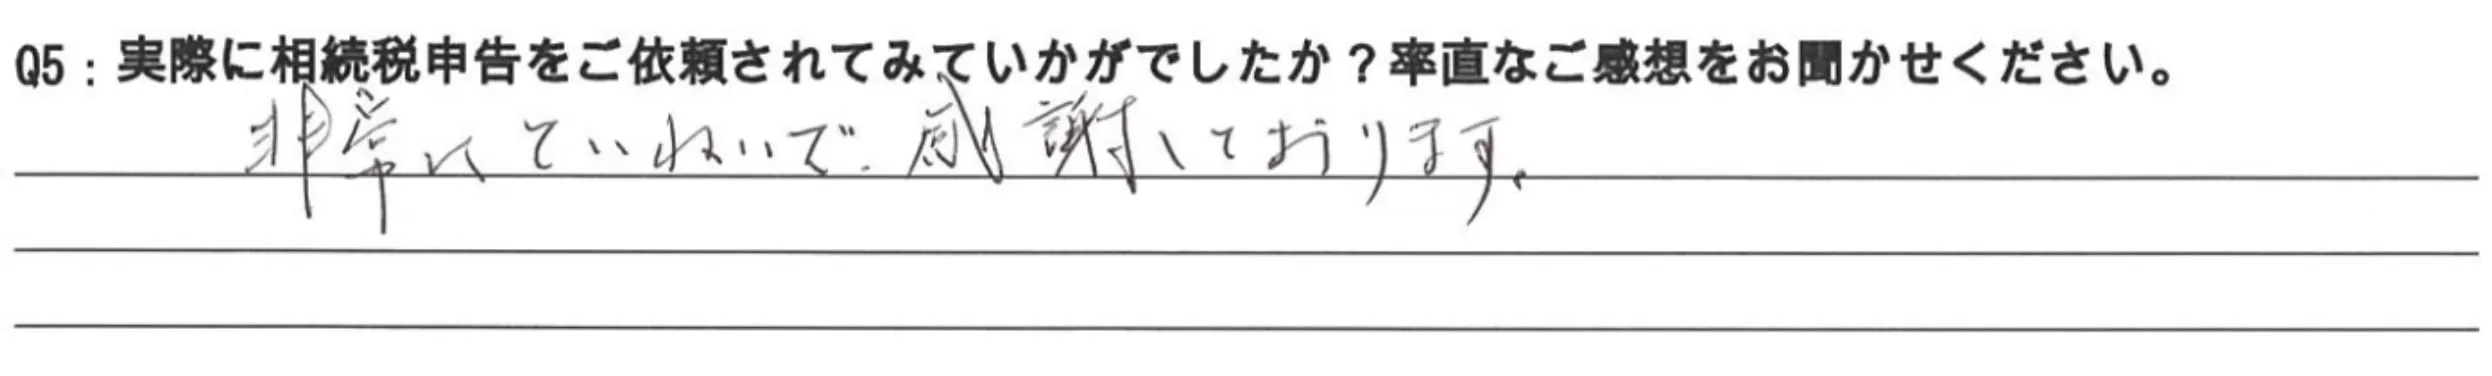 Q5：実際に相続税申告をご依頼されてみていかがでしたか？率直なご感想をお聞かせください。
非常にていねいで、感謝しております。